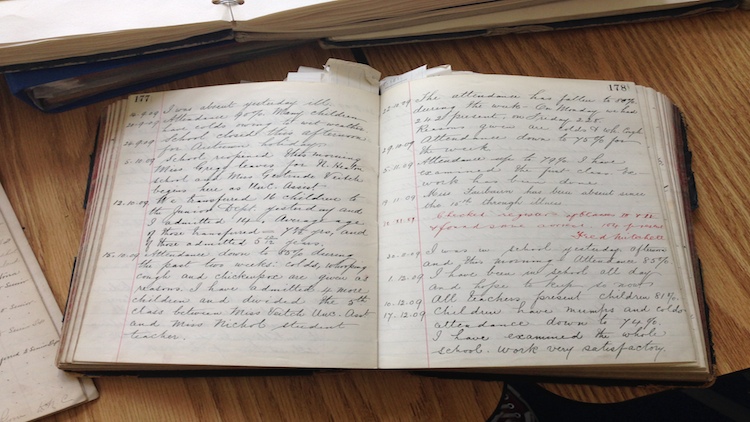 177
I was absent yesterday ill.
Attendance 90%. Many children
have colds owing to wet weather
School closed this afternoon
24.9.09
for Autumn holidays.
5.10.09 School reopened this morning
Miss Greg leaves for N. Heaton
school and Miss Gertrude Veitch
begins here as Unc. Assist.
12.10.09 We transferred 16 children to
the Junior School yesterday and
I admitted 14. Average age
of those transferred — 7½ yrs, and
of those admitted 5 years.
15.10.09 Attendance down to 85% during
the last two weeks. colds, whooping
cough and chickenpox are given as
reasons. I have admitted 4 more
children and divided the 5th
class between Miss Veitch Unc. Asst
and Miss Nichol student
teacher.
178
The attendance has fallen to 80%
during the week. On Monday we had
242 present, on Friday 225.
Reasons given are colds & Wh. Cough
29.10.09 Attendance down to 75% for
the week
5.11.09 Attendance up to 79%. I have
examined the first class.
work has been done
19.11.09 Miss Fairbairn has been absent since
the 10th through illness
Checked registers of Classes
& found same correct.
Fred Mitchell
I was in school yesterday afternoon
and this morning. Attendance 85%
1.12.09 I have been in school all day
and hope to keep so now
10.12.09 All teachers present children 81%.
17.12.09 Children have mumps and colds
attendance down to 74%.
I have examined the whole
school. Work very satisfactory.